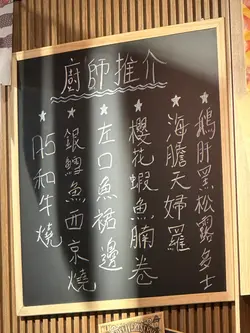 廚師推介
★鵝肝黑松露多士
★海膽天婦羅
★櫻花蝦魚腩卷
★左口魚裙邊
★銀鱈魚西京燒
★A5和牛燒